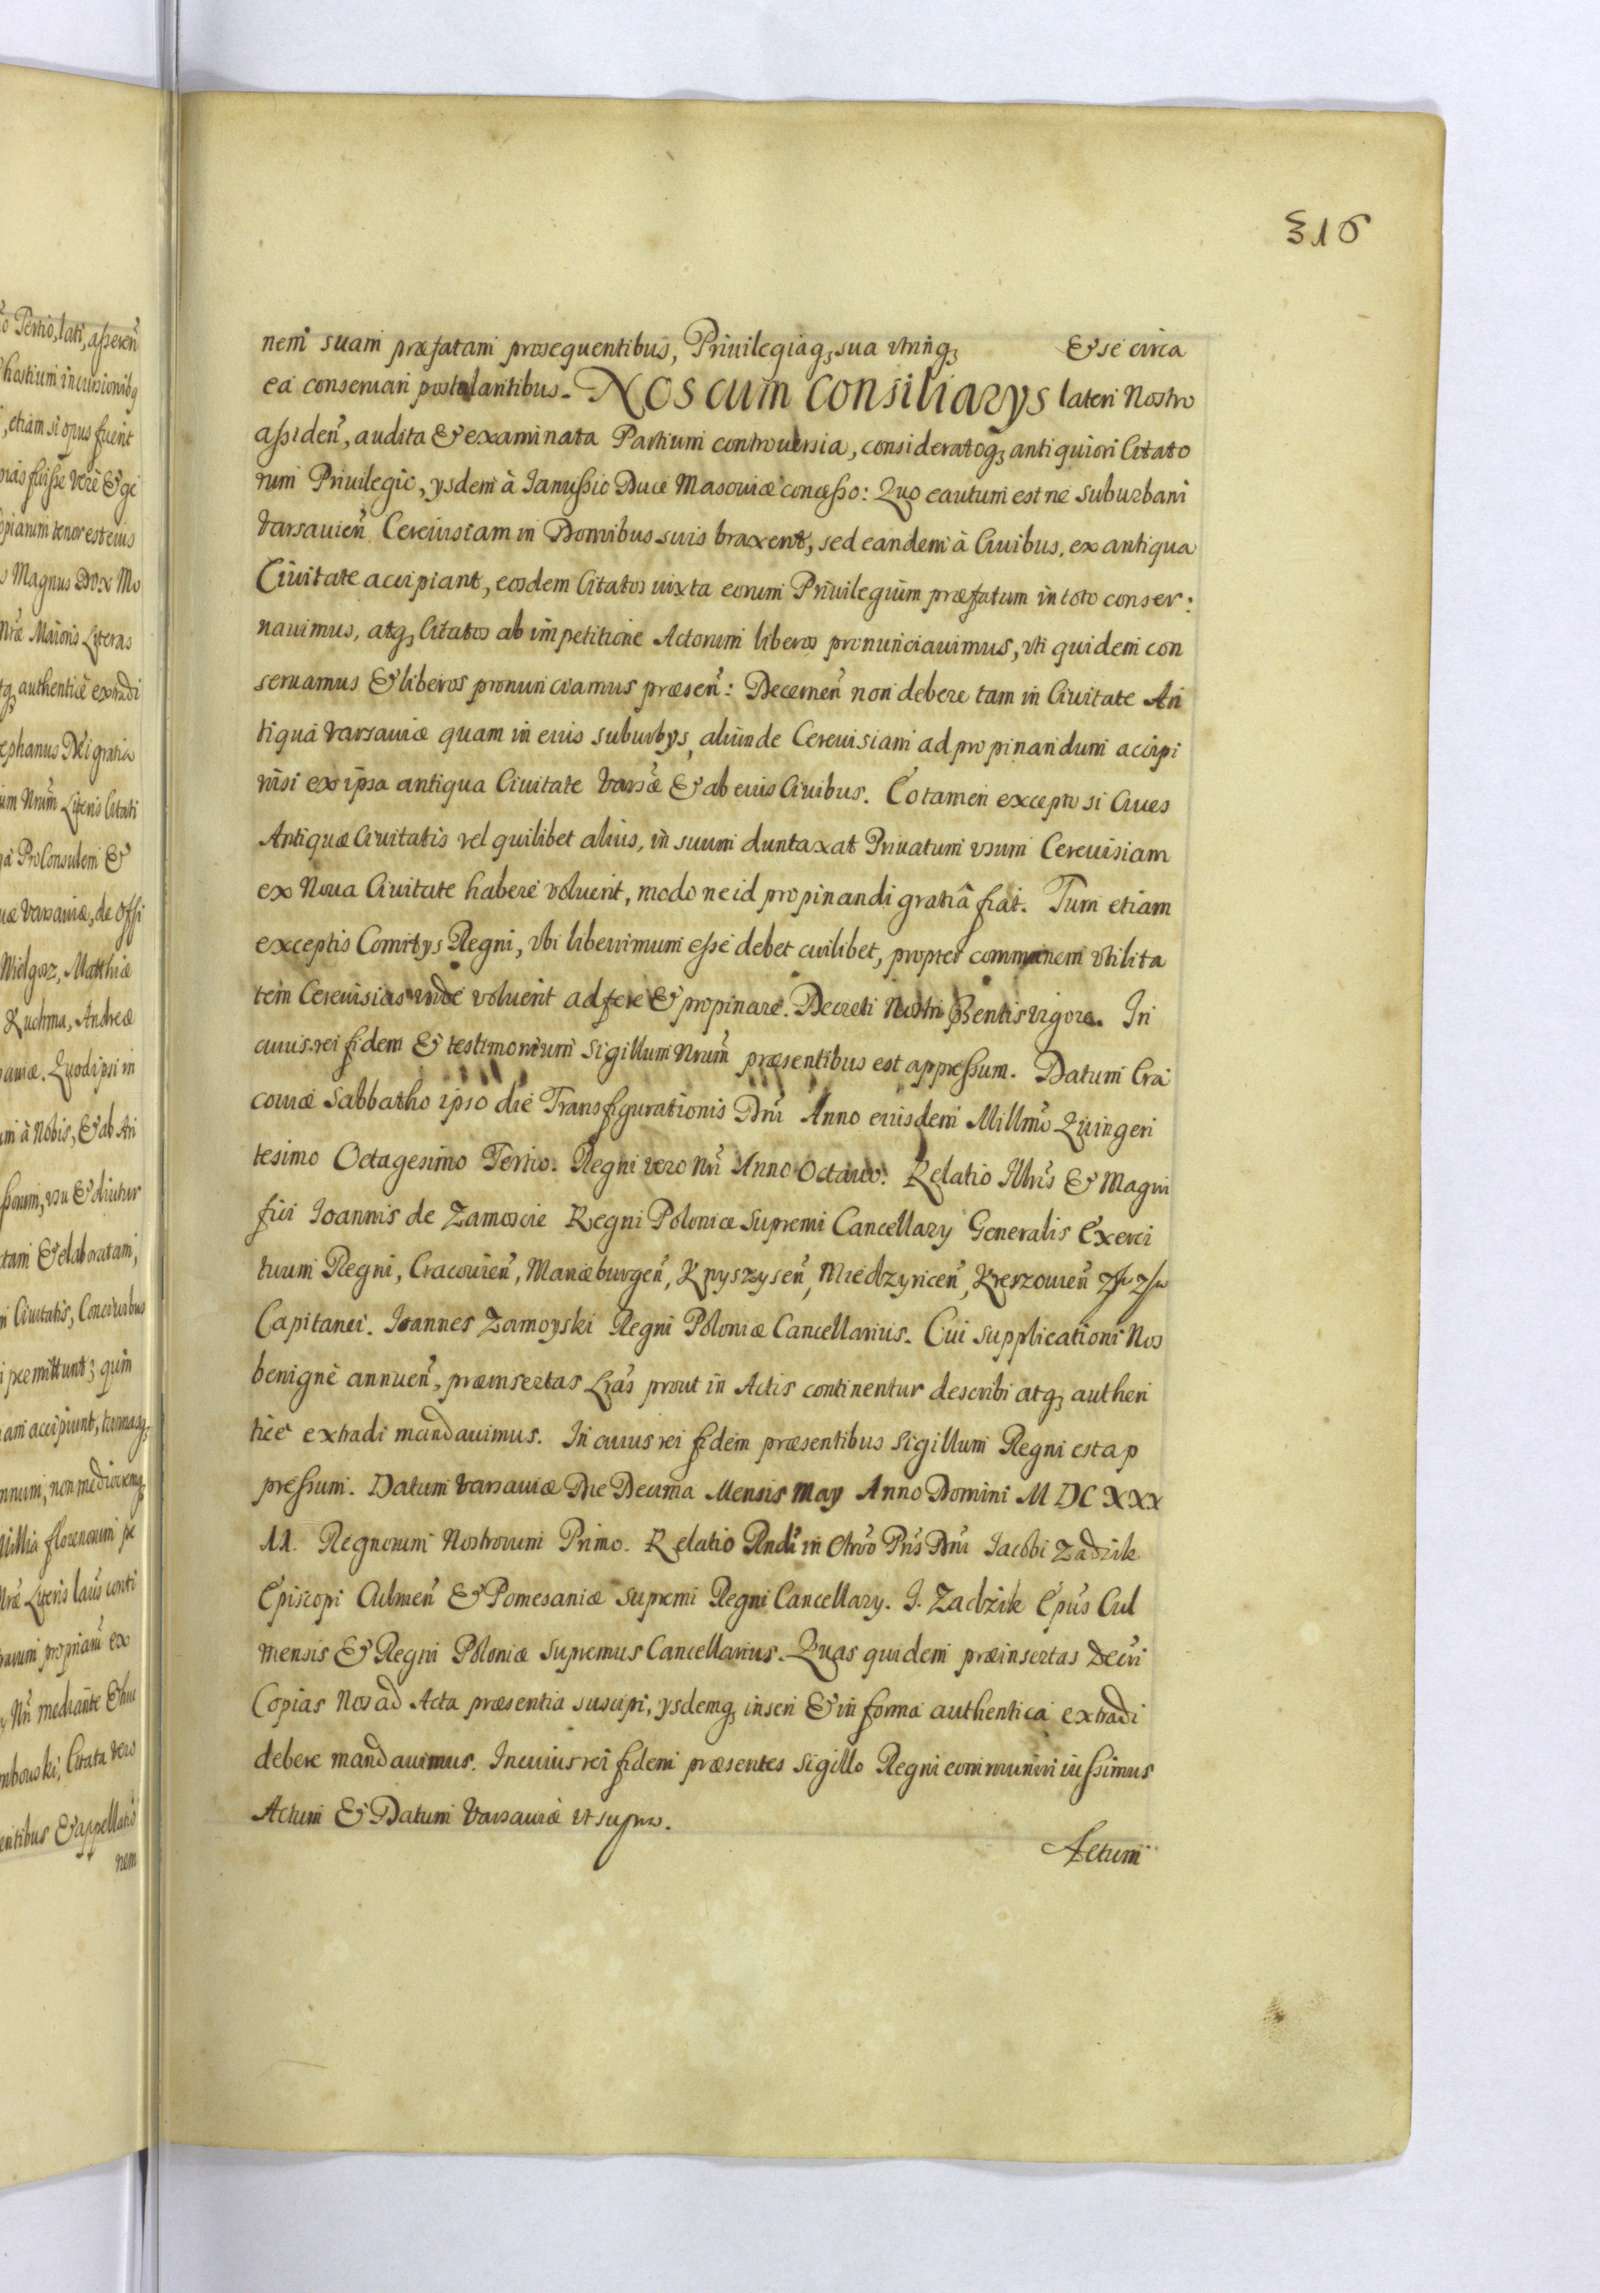 316
nem suam præfatam prosequentibus, Priuilegiaq₃ sua vtrinq₃ & se circa
ea conseruari postulantibus. Nos cum Consiliarys lateri Nostro
assideñ, audita & examinata Partium controuersia, consideratoq₃ antiquiori Citato
rum Priuilegio, ysdem à Ianussio Duce Masouiæ concesso: Quo cautum est ne suburbani
Varsauieñ Cereuisiam in Domibus suis braxent, sed eandem à Ciuibus, ex antiqua
Ciuitate accipiant, eosdem Citatos iuxta eorum Priuilegium præfatum in toto conser:
uauimus, atq₃ Citatos ab impetitione Actorum liberos pronunciauimus, vti quidem con
seruamus & liberos pronunciamus præseñ: Decerneñ non debere tam in Ciuitate An
tiqua Varsauiæ quam in eius suburbys, aliunde Cereuisiam ad propinandum accipi
nisi ex ipsa antiqua Ciuitate Varsæ & ab eius Ciuibus. Eo tamen excepto si Ciues
Antiquæ Ciuitatis vel quilibet alius, in suum duntaxat Priuatum vsum Cereuisiam
ex Noua Ciuitate habere voluerit, modo ne id propinandi gratiâ fiat. Tum etiam
exceptis Comitys Regni, vbi liberrimum esse debet cuilibet, propter communem vtilita
tem Cereuisias vnde voluerit adfere & propinare. Decreti Nostri p̃sentis vigore. In
cuius rei fidem & testimonium Sigillum Nrum̃ præsentibus est appressum. Datum Cra
couiæ Sabbatho ipso die Transfigurationis Dñi Anno eiusdem Millmõ Quingen
tesimo Octagesimo Tertio. Regni vero Nri Anno Octauo. Relatio Illris & Magni
fici Ioannis de Zamoscie Regni Poloniæ Supremi Cancellary Generalis Exerci
tuum Regni, Cracouieñ, Mariæburgeñ, Knyszyseñ, Miedzyriceñ, Kreszouieñ
Capitanei. Ioannes Zamoyski Regni Poloniæ Cancellarius. Cui supplicationi Nos
benignè annueñ, præinsertas Lrãs prout in Actis continentur describi atq₃ authen
ticè extradi mandauimus. In cuius rei fidem præsentibus Sigillum Regni est ap
pressum. Datum Varsauiæ Die Decima Mensis May Anno Domini M DC XXX
11. Regnorum Nostrorum Primo. Relatio Rndi in Chrõ Pris Dñi Iacobi Zadzik
Episcopi Culmeñ & Pomesaniæ Supremi Regni Cancellary. I. Zadzik Epus Cul
mensis & Regni Poloniæ Supremus Cancellarius. Quas quidem præinsertas Decri
Copias Nos ad Acta præsentia suscipi, ysdemq₃ inseri & in forma authentica extradi
debere mandauimus. In cuius rei fidem præsentes Sigillo Regni communiri iussimus
Actum & Datum Varsauiæ vt supra.
Actum